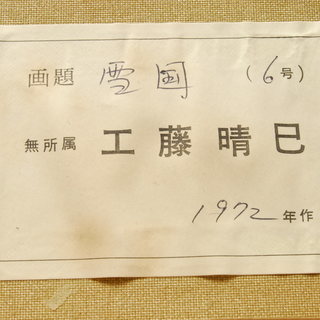 画題 雪国 (6号)
無所属 工藤晴巳
1972年作